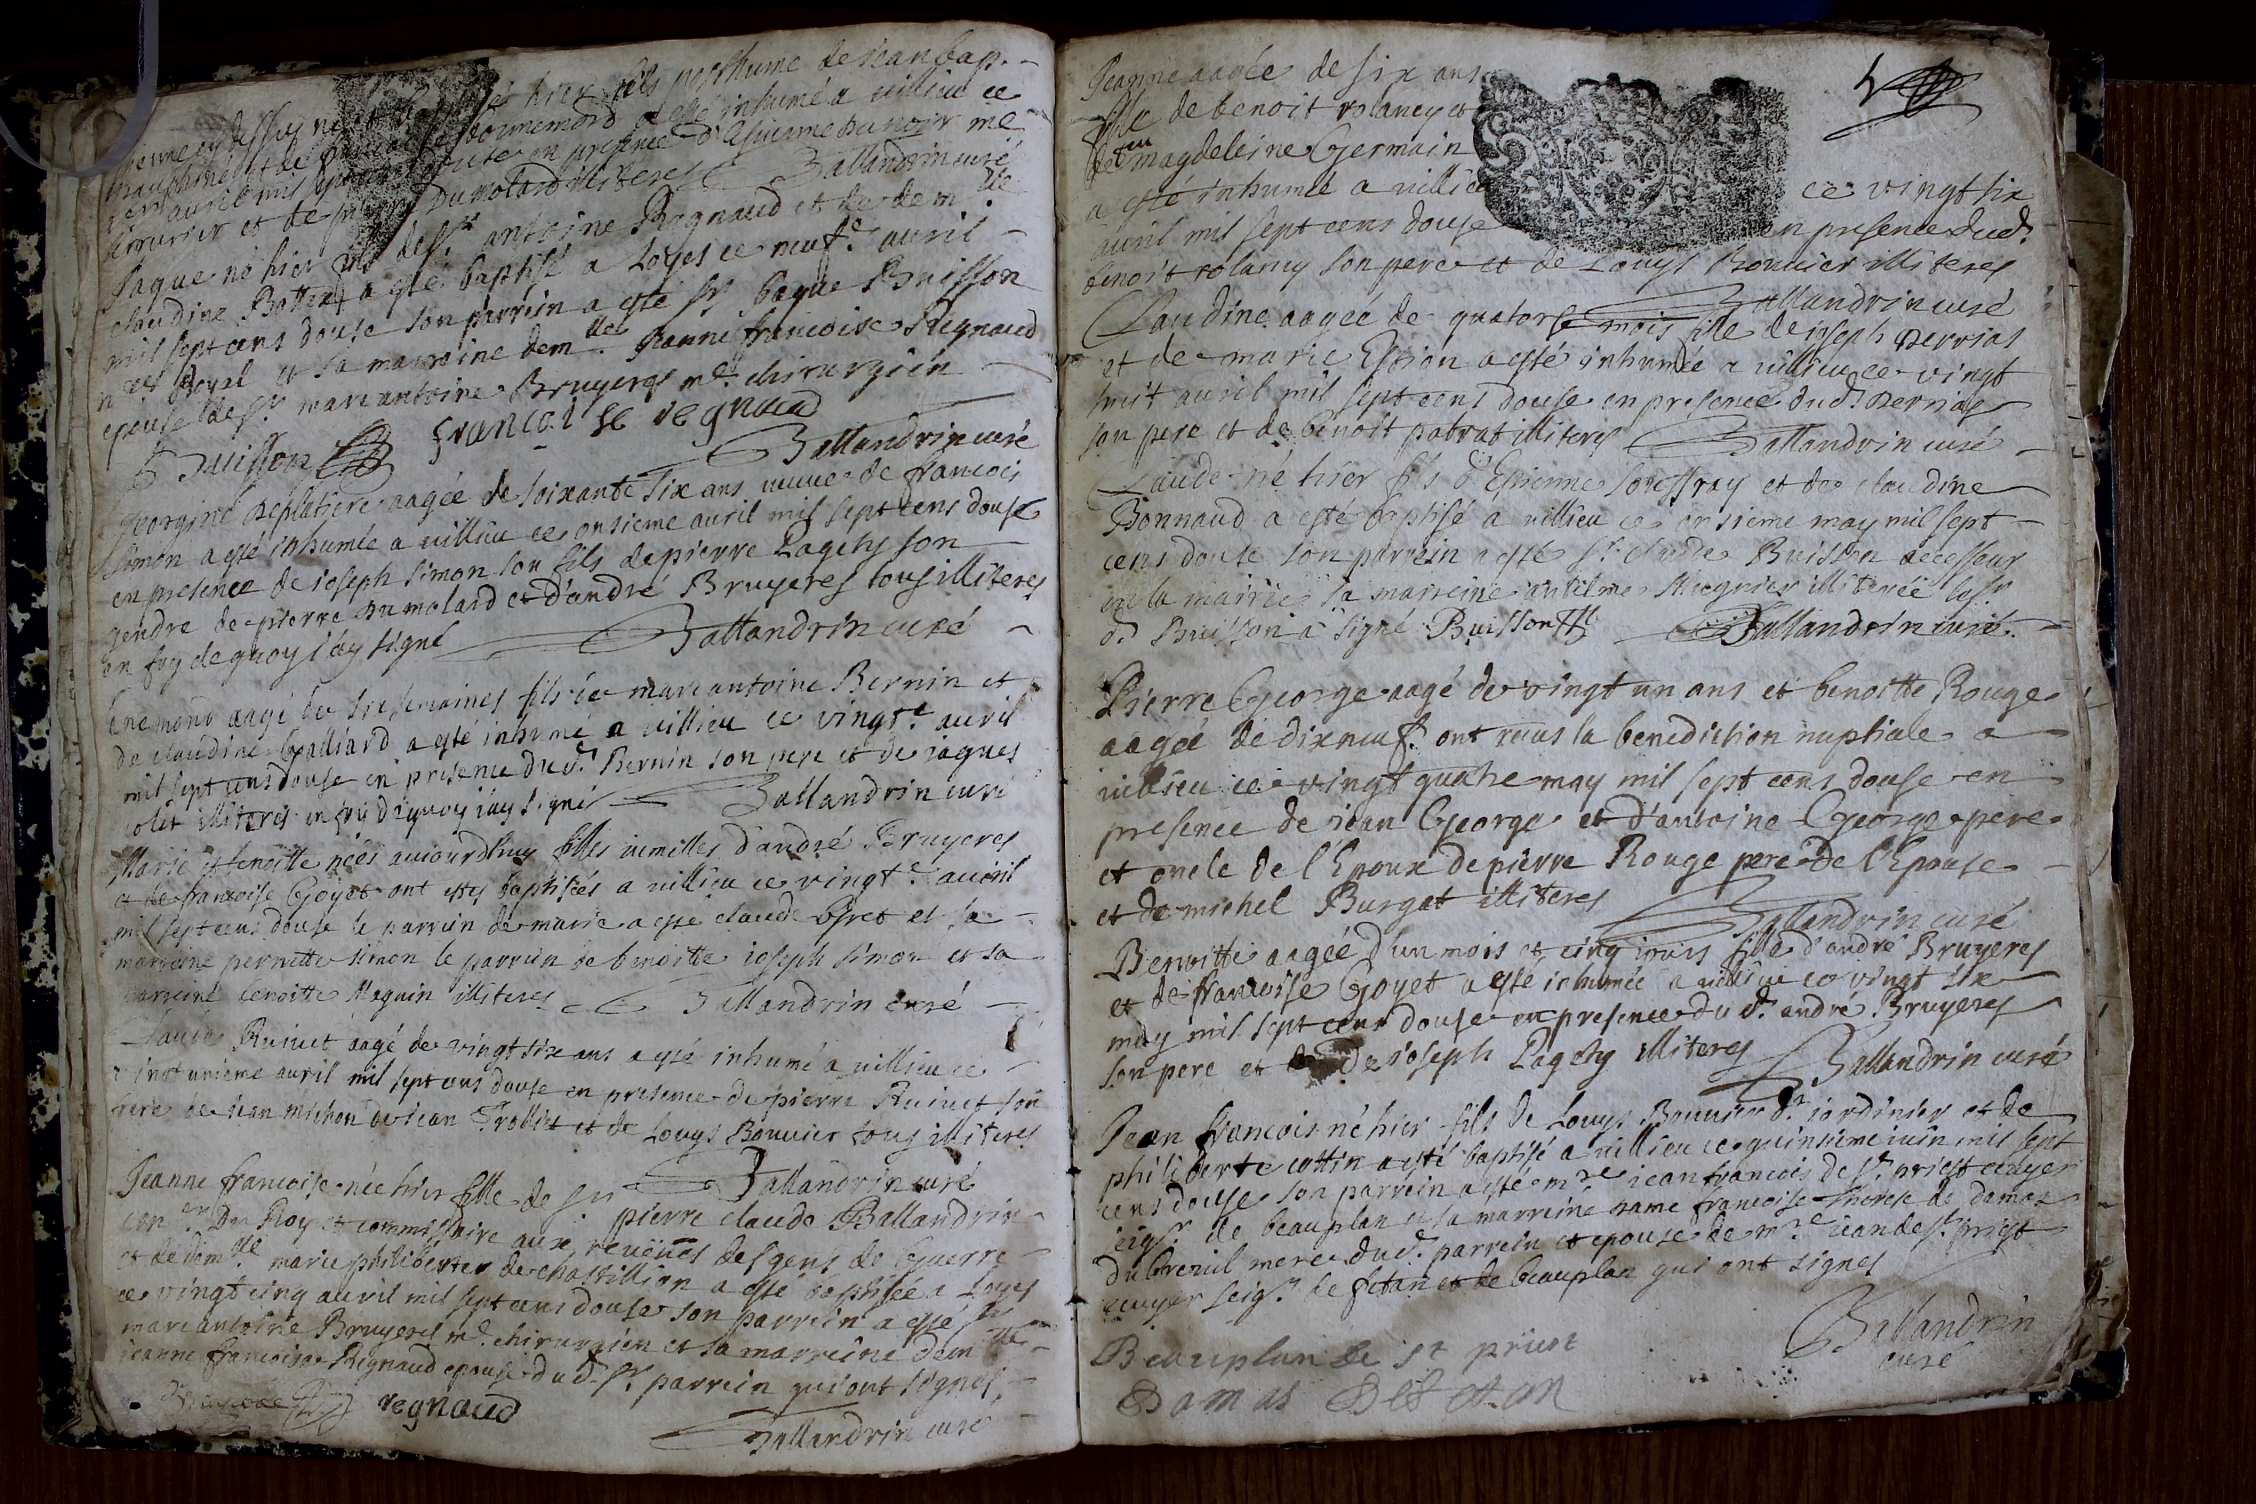 hier fils posthume de jean bap.
a esté inhumé a villieu ce
avril mil en presence d'Estienne Dunoir me
et de Dumolard illiteres Ballandrin curé
Jaque né hier fils de Sr antoine Regnaud et de dem.lle
claudine a esté baptisé a Loyes ce neuf.e avril
mil sept cens douse son parrein a esté Sr Jaque Buisson
royal et sa marreine dem.lle Jeanne francoise Regnaud
epouse de Sr marc antoine Bruyeres m.e chirurgien
Buisson francoise regnaud
Ballandrin curé
Georgine Deplatiere aagée de soixante six ans veuve de francois
simon a esté inhumée a villieu ce onsieme avril mil sept cens douse
en presence de joseph simon son fils de pierre Pagety son
gendre de pierre Dumolard et d'andré Bruyeres tous illiteres
en foy de quoy j'ay signé Ballandrin curé
Enemond aagé de six semaines fils de marc antoine Bernin et
de claudine Galliard a esté inhumé a villieu ce vingt.e avril
mil sept cens douse en presence dud. Bernin son pere et de jaques
colet illiteres en foy de quoy j'ay signé Ballandrin curé
Marie et benoitte nées aujourdhuy filles jumelles d'andré Bruyeres
et de francoise Goyet ont estes baptisées a villieu ce vingt.e avril
mil sept cens douse le parrein de marie a esté claude et sa
marreine pernette simon le parrein de benoitte joseph simon et sa
marreine benoitte Maguin illiteres Ballandrin curé
Claude Ruivet aagé de vingt six ans a esté inhumé a villieu ce
vingt unieme avril mil sept cens douse en presence de pierre Ruivet son
frere de jean michon de jean Trolliet et de Louys Bouvier tous illiteres
Ballandrin curé
Jeanne francoise née hier fille de Sr pierre claude Ballandrin
con.er Du Roy et commissaire aux reveües des gens de Guerre
et de dem.lle marie philiberte de chastillion a esté baptisée a Loyes
ce vingt cinq avril mil sept cens douse son parrein a esté Sr
marc antoine Bruyeres m.e chirurgien et sa marreine dem.lle
jeanne francoise Regnaud epouse dud. Sr parrein qui ont signes
regnaud
Ballandrin curé
Jeanne aagée de six ans
fille de benoit rolancy et
de magdeleine Germain
a esté inhumée a villieu ce vingt six
avril mil sept cens douse en presence dud.
benoit rolancy son pere et de Louys Bouvier illiteres
Ballandrin curé
Claudine aagée de quatorse mois fille de joseph Derrias
et de marie a esté inhumée a villieu ce vingt
huit avril mil sept cens douse en presence dud. Derrias
son pere et de benoit illiteres Ballandrin curé
Claude né hier fils d'Estienne et de claudine
Bonnaud a esté baptisé a villieu ce onsieme may mil sept
cens douse son parrein a esté Sr claude Buisson
en la mairie sa marreine antelme illiterée le Sr
d. Buisson a signé Buisson Ballandrin curé
Pierre George aagé de vingt un ans et benoitte Rouge
aagée de dixneuf ont receus la benediction nuptiale a
villieu ce vingt quatre may mil sept cens douse en
presence de jean George et d'antoine George pere
et oncle de l'Epoux de pierre Rouge pere de l'Epouse
et de michel Burgat illiteres Ballandrin curé
Benoitte aagée d'un mois et cinq jours fille d'andré Bruyeres
et de francoise Goyet a esté inhumée a villieu ce vingt six
may mil sept cens douse en presence du d. andré Bruyeres
son pere et de joseph Pagety illiteres Ballandrin curé
Jean francois né hier fils de Louys Bouvier d.t jardinier et de
philiberte cottin a esté baptisé a villieu ce quinsieme juin mil sept
cens douse son parrein a esté m.re jean francois de St priest ecuyer
seig.r de beauplan et sa marreine dame francoise therese de damas
dubreuil mere dud. parrein et epouse de m.re jean de St priest
ecuyer seig.r de fetan et de beauplan qui ont signes
Beauplan de St priest Ballandrin
Damas Defetan curé